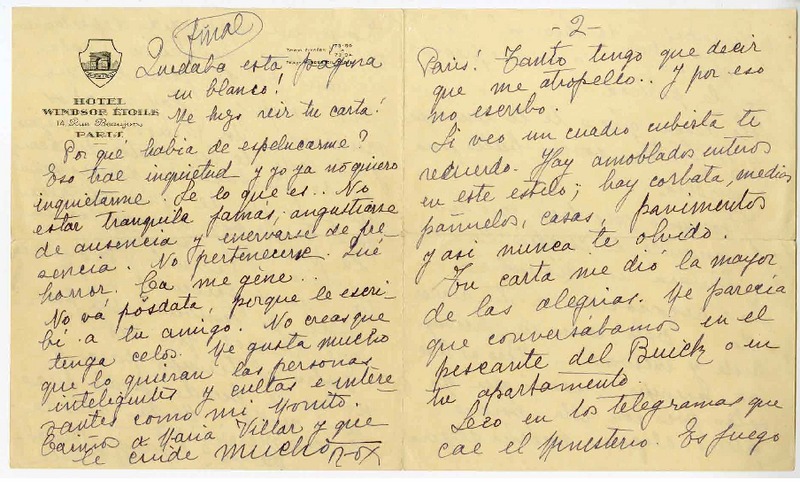 final
Quedaba esta página
en blanco!
HOTEL
WINDSOR ÉTOILE
14 Rue Beaujon
PARIS
Me hizo reir tu carta!
Por qué había de espelucarme?
Eso trae inquietud y yo ya no quiero
inquietarme. Se lo que es.. No
estar tranquila jamás, angustiarse
de ausencia y enervarse de pre-
sencia. No pertenecerse. Qué
horror. Ça me gêne..
No vá posdata, porque le escri-
bí a tu amigo. No creas que
tenga celos. Me gusta mucho
que lo quieran las personas
inteligentes y cultas e intere-
santes como mi Monito.
Cariños de María Villar y que
te cuide mucho
-2-
París! Tanto tengo que decir
que me atropello.. Y por eso
no escribo.
Si veo un cuadro cubista te
recuerdo. Hay amoblados enteros
en este estilo; hay corbata, medias
pañuelos, casas, pavimentos
y asi nunca te olvido.
Tu carta me dió la mayor
de las alegrias. Me parecía
que conversábamos en el
pescante del Buick o en
tu apartamento.
Leo en los telegramas que
cae el Ministerio. Es fuego